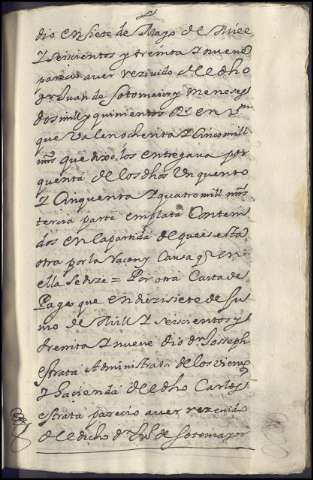 dio en siete de Mayo de Mill
Y seiscientos y treinta Y nueve
parecio aver rezivido del dho
Dn Juan de Sotomaior y Meneses
dos mill y quinientos Rs en
que Valen ochenta Y cinco mill
mrs que dixo los entregava por
quenta de los dhos Un quento
Y Cinquenta Y quatro mill mrs
tercia parte en plata Conteni
dos en la partida de que es esta
otra por la Razon y Causa q en
ella Se dize = Por otra Carta de
Pago que en diezisiete de Ju
nio de Mill Y seiscientos y
treinta Y nueve dio Dn Joseph
Strata Administrador de los vienes
Y hacienda del dho Carlos
Strata parecio aver rezevido
del dicho Dn Ju de Sotomaior